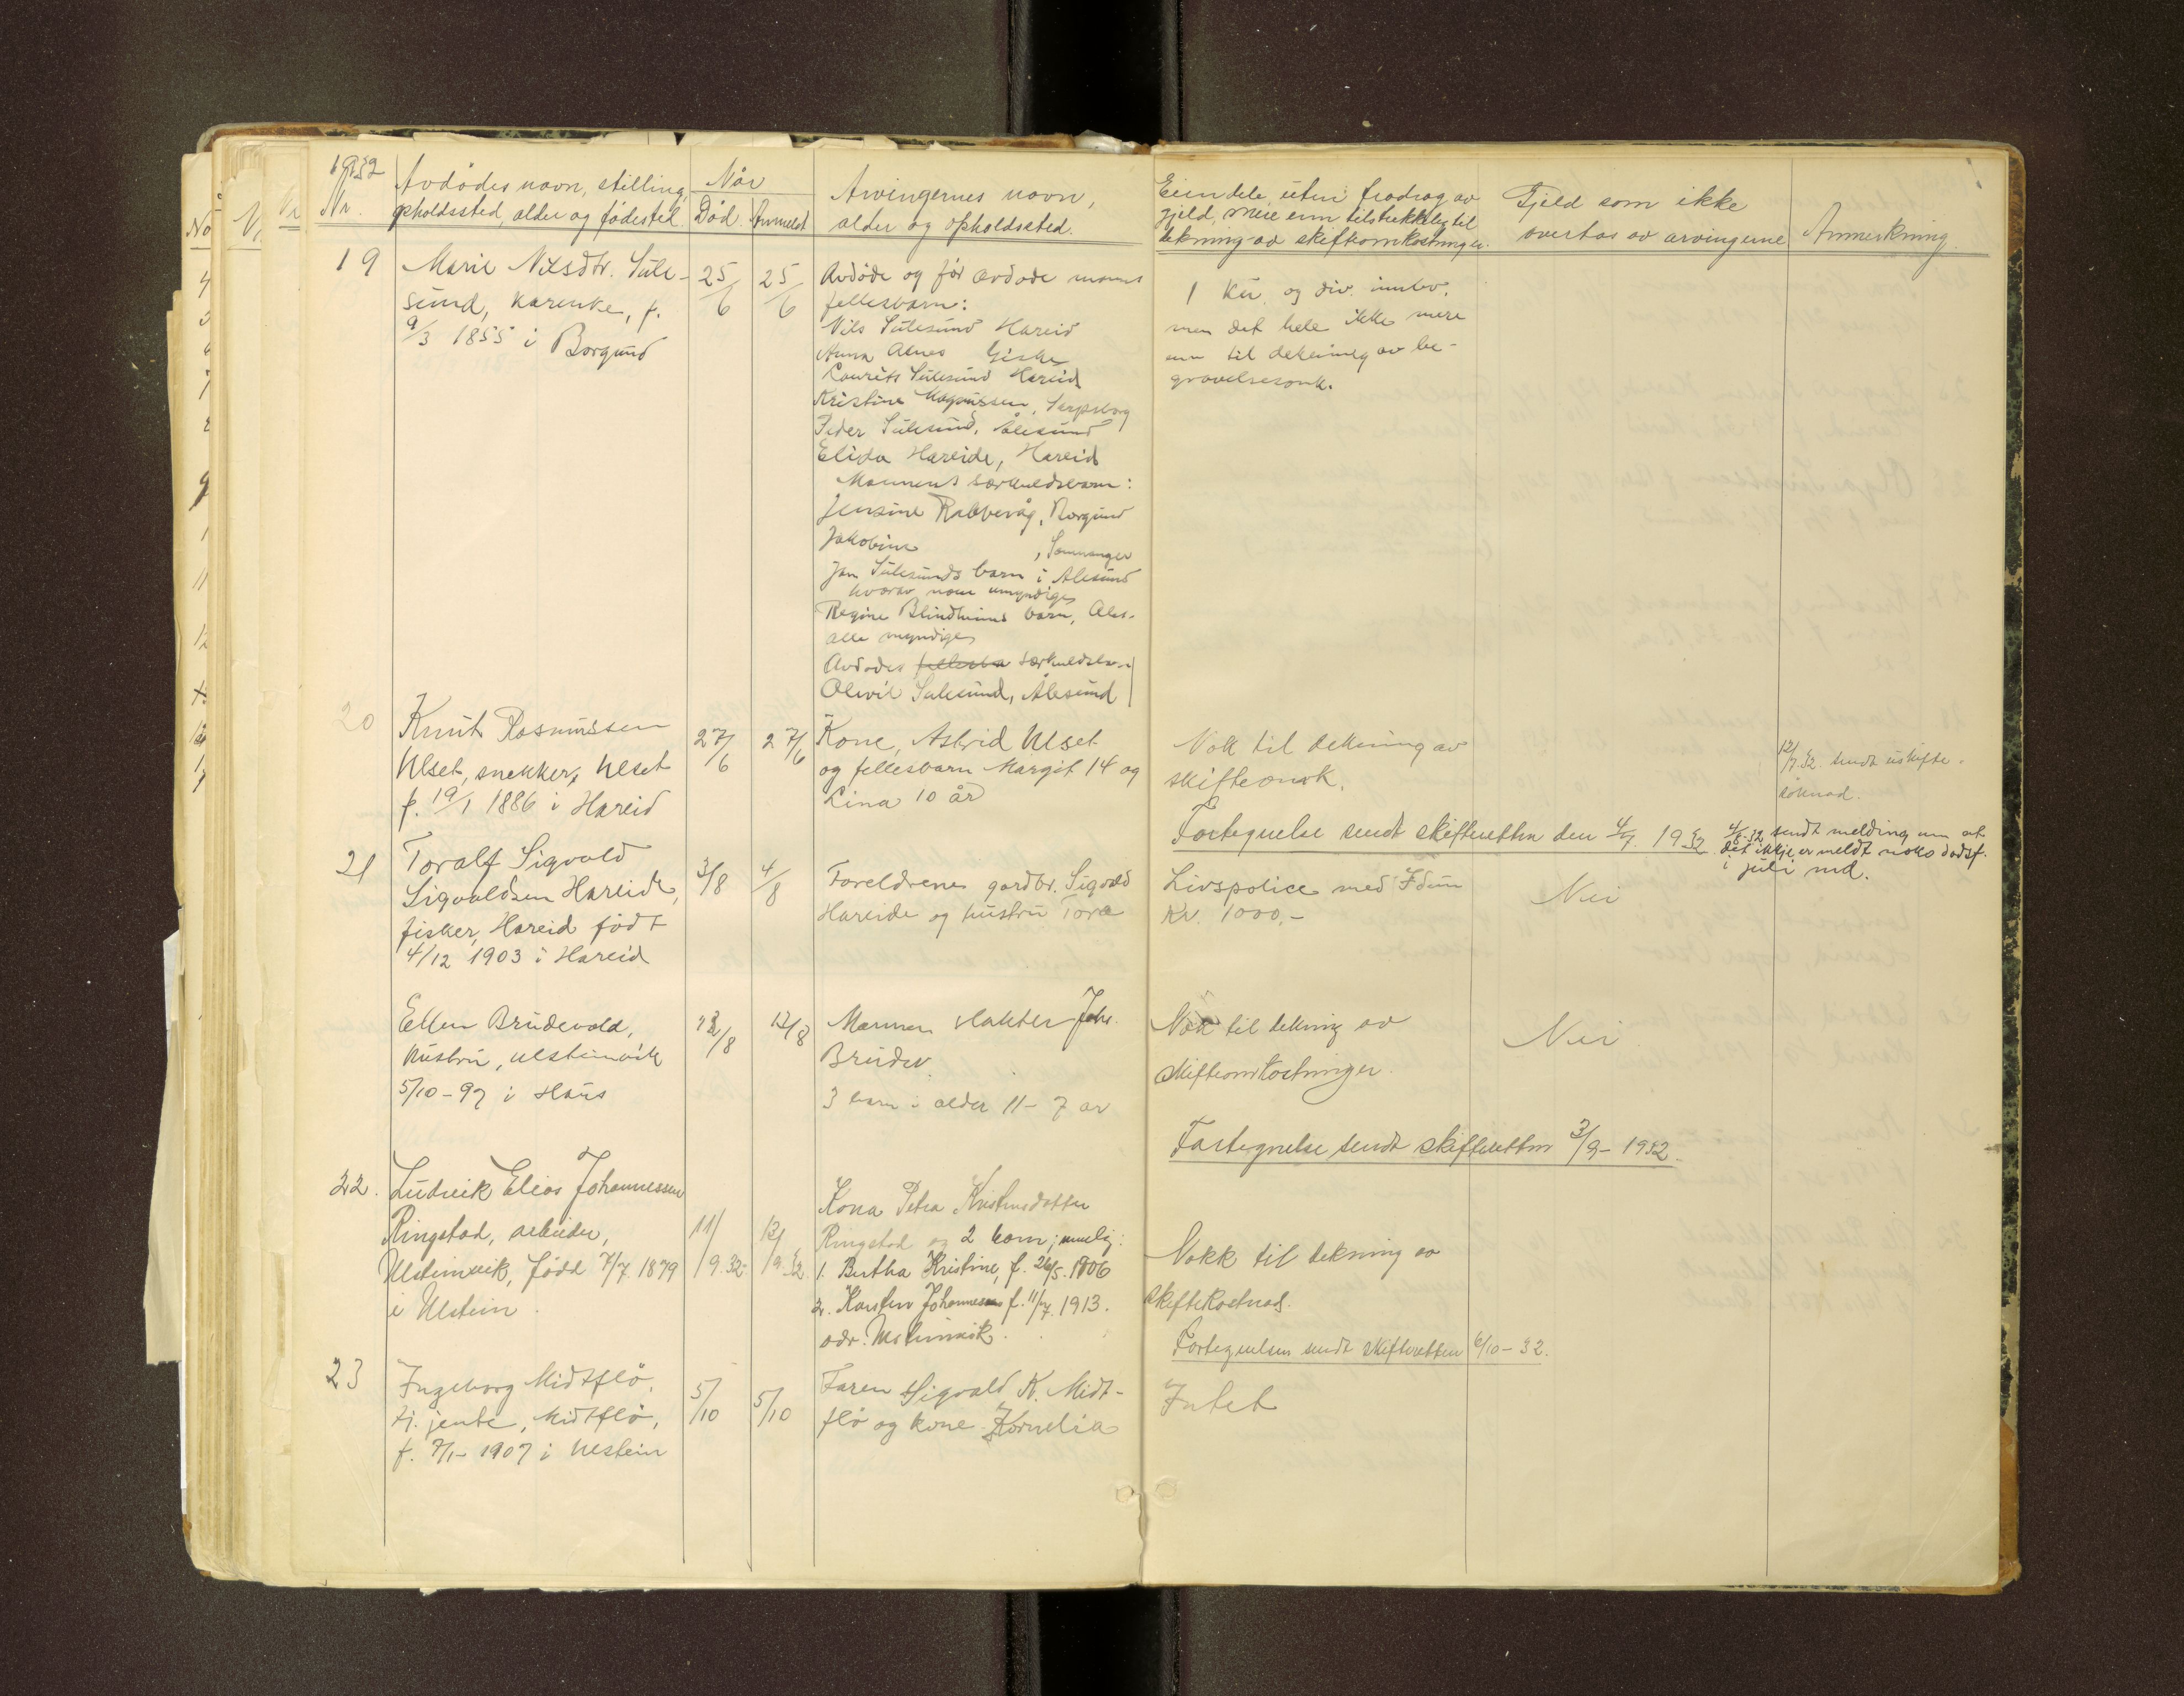 1932
Nr.
Avdødes navn, stilling,
opholdssted, alder og fødested.
Når
Død. Anmeldt
Arvingernes navn,
alder og opholdssted.
Eiendele uten fradrag av
gjeld, mere enn tilstrekkelig til
dekning av skifteomkostninger.
Gjeld som ikke
overtas av arvingerne
Anmerkning.
19
Marie Nilsdtr. Sule-
sund, kårenke, f.
9/3 1855 i Borgund
25/6
25/6
Avdøde og før avdøde manns
fellesbarn:
Nils Sulesund Hareid
Anna Alnes Giske
Laurits Sulesund Hareid
Kristine Magnussen, Sarpsborg
Peder Sulesund, Ålesund
Elida Hareide, Hareid
Mannens særkuldsbarn:
Jensine Rabbevåg, Borgund
Jakobine , Samnanger
Jon Sulesunds barn i Ålesund
hvorav noen umyndige
Regine Blindheims barn, Ales.
alle myndige
Avdødes fellesba særkuldsb.
Olevil Sulesund, Ålesund
1 ku og div. innbo,
men det hele ikke mere
enn til dekning av be-
gravelsesomk.
20
Knut Rasmussen
Ulset, snekker, Ulset
f. 19/1 1886 i Hareid
27/6
27/6
Kone, Astrid Ulset
og fellesbarn Margit 14 og
Lina 10 år
Nok til dekning av
skifteomk.
12/7.32. sendt uskifte-
søknad.
Fortegnelse sendt skifteretten den 4/7. 1932
4/8.32 sendt melding um at
det ikkje er meldt noko dødsf.
i juli md.
21
Toralf Sigvald
Sigvaldsen Hareide,
fisker, Hareid født
4/12 1903 i Hareid
3/8
4/8
Foreldrene gardbr. Sigvald
Hareide og hustru Tora
Livspolice med Idun
Kr. 1000,-
Nei
Ellen Brudevold,
hustru, Ulsteinvik
5/10-97 i Haus
12/8
12/8
Mannen slakter Johs.
Brudev.
3 barn i alder 11-7 år
Nok til dekning av
skifteomkostninger.
Nei
Fortegnelse sendt skifteretten 3/9-1932.
22.
Ludvik Elias Johannessen
Ringstad, arbeider,
Ulsteinvik, født 7/7 1879
i Ulstein.
11/9.32
13/9.32
Kona Petra Kristensdotter
Ringstad og 2 born, nemlig:
1. Bertha Kristine, f. 26/5.1906
2. Karsten Johannes f. 11/7.1913.
adr. Ulsteinvik.
Nokk til dekning av
skiftekostnad.
Fortegnelsen sendt skifteretten 6/10-32.
23
Ingeborg Midtflø,
tj. jente, Midtflø,
f. 7/1-1907 i Ulstein
5/10
5/10
Faren Sigvald K. Midt-
flø og kone Kornelia
Intet